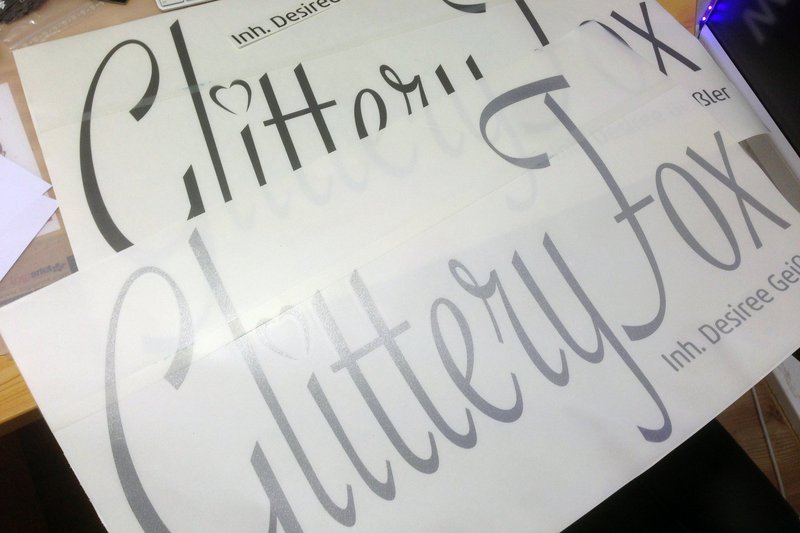 Inh. Desiree
Glittery Fox
ßler
Glittery Fox
Inh. Desiree Geiß